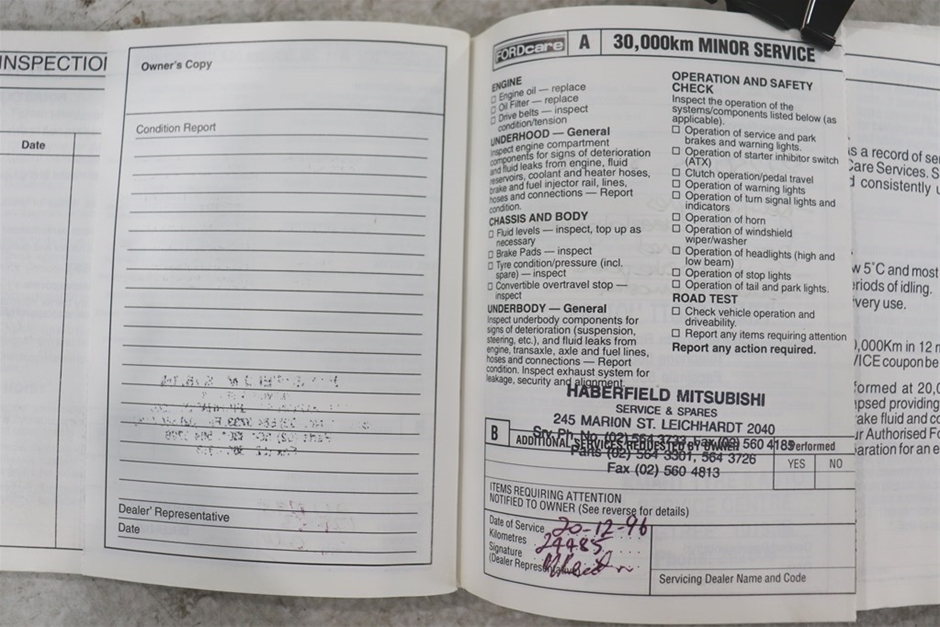 INSPECTIO
Date
Owner's Copy
Condition Report
Dealer' Representative
Date
FORDcare A 30,000km MINOR SERVICE
ENGINE
Engine oil — replace
Oil Filter — replace
Drive belts — inspect
condition/tension
UNDERHOOD — General
Inspect engine compartment
components for signs of deterioration
and fluid leaks from engine, fluid
reservoirs, coolant and heater hoses,
brake and fuel injector rail, lines,
hoses and connections — Report
condition.
CHASSIS AND BODY
Fluid levels — inspect, top up as
necessary
Brake Pads — inspect
Tyre condition/pressure (incl.
spare) — inspect
Convertible overtravel stop —
inspect
UNDERBODY — General
Inspect underbody components for
signs of deterioration (suspension,
steering, etc.), and fluid leaks from
engine, transaxle, axle and fuel lines,
hoses and connections — Report
condition. Inspect exhaust system for
leakage, security and alignment.
OPERATION AND SAFETY
CHECK
Inspect the operation of the
systems/components listed below (as
applicable).
Operation of service and park
brakes and warning lights.
Operation of starter inhibitor switch
(ATX)
Clutch operation/pedal travel
Operation of warning lights
Operation of turn signal lights and
indicators
Operation of horn
Operation of windshield
wiper/washer
Operation of headlights (high and
low beam)
Operation of stop lights
Operation of tail and park lights.
ROAD TEST
Check vehicle operation and
driveability.
Report any items requiring attention
Report any action required.
HABERFIELD MITSUBISHI
SERVICE & SPARES
245 MARION ST. LEICHHARDT 2040
Ser. Ph. No. (02) 564 3733 Fax (02) 560 4185
Parts (02) 564 3561, 564 3726
Fax (02) 560 4813
B ADDITIONAL SERVICES REQUESTED BY OWNER Performed
YES NO
ITEMS REQUIRING ATTENTION
NOTIFIED TO OWNER (See reverse for details)
Date of Service 20-12-96
Kilometres 24485
Signature
(Dealer Representative)
Servicing Dealer Name and Code
is a record of se
Care Services. S
d consistently u
w 5°C and most
eriods of idling.
very use.
0,000Km in 12 m
VICE coupon be
formed at 20,0
apsed providing
rake fluid and co
ur Authorised Fo
aration for an e